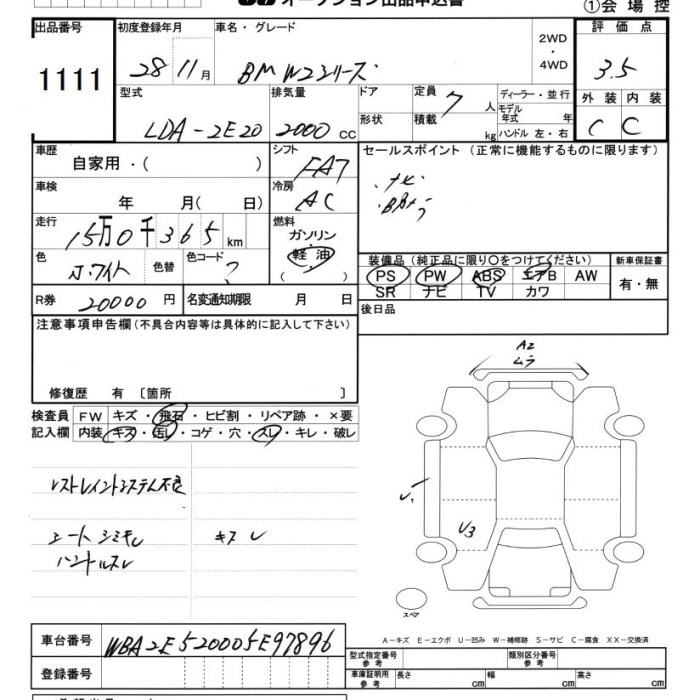 オークション出品申込書 ①会場控
出品番号 初度登録年月 車名・グレード 評価点
1111 28 11月 BMW2シリーズ 2WD・4WD 3.5
型式 排気量 ドア 定員 7人 ディーラー・並行 外装 内装
LDA-2E20 2000cc 形状 積載 kg モデル年式 年 ハンドル 左・右 C C
車歴 自家用・( ) シフト FA7 セールスポイント (正常に機能するものに限ります)
車検 年 月( 日) 冷房 AC ・ナビ
走行 15万0千365km 燃料 ガソリン・軽油( )
色 ホワイト 色替 色コード ? 装備品(純正品に限り〇をつけてください) 新車保証書
PS PW ABS エアB AW 有・無
SR ナビ TV カワ
R券 20000円 名変通知期限 月 日 後日品
注意事項申告欄(不具合内容等は具体的に記入して下さい)
修復歴 有 〔箇所 〕
検査員 FW キズ・飛石・ヒビ割・リペア跡・×要
記入欄 内装 キズ・汚レ・コゲ・穴・スレ・キレ・破レ
レストレイントシステム不良
シート シミヨレ キスレ
ハンドルスレ
A2
ムラ
U1
U3
スペア
A-キズ E-エクボ U-凹み W-補修跡 S-サビ C-腐食 XX-交換済
車台番号 WBA2E520005E97896 型式指定番号 参考 類別区分番号 参考
登録番号 車庫証明用 参考 長さ cm 幅 cm 高さ cm